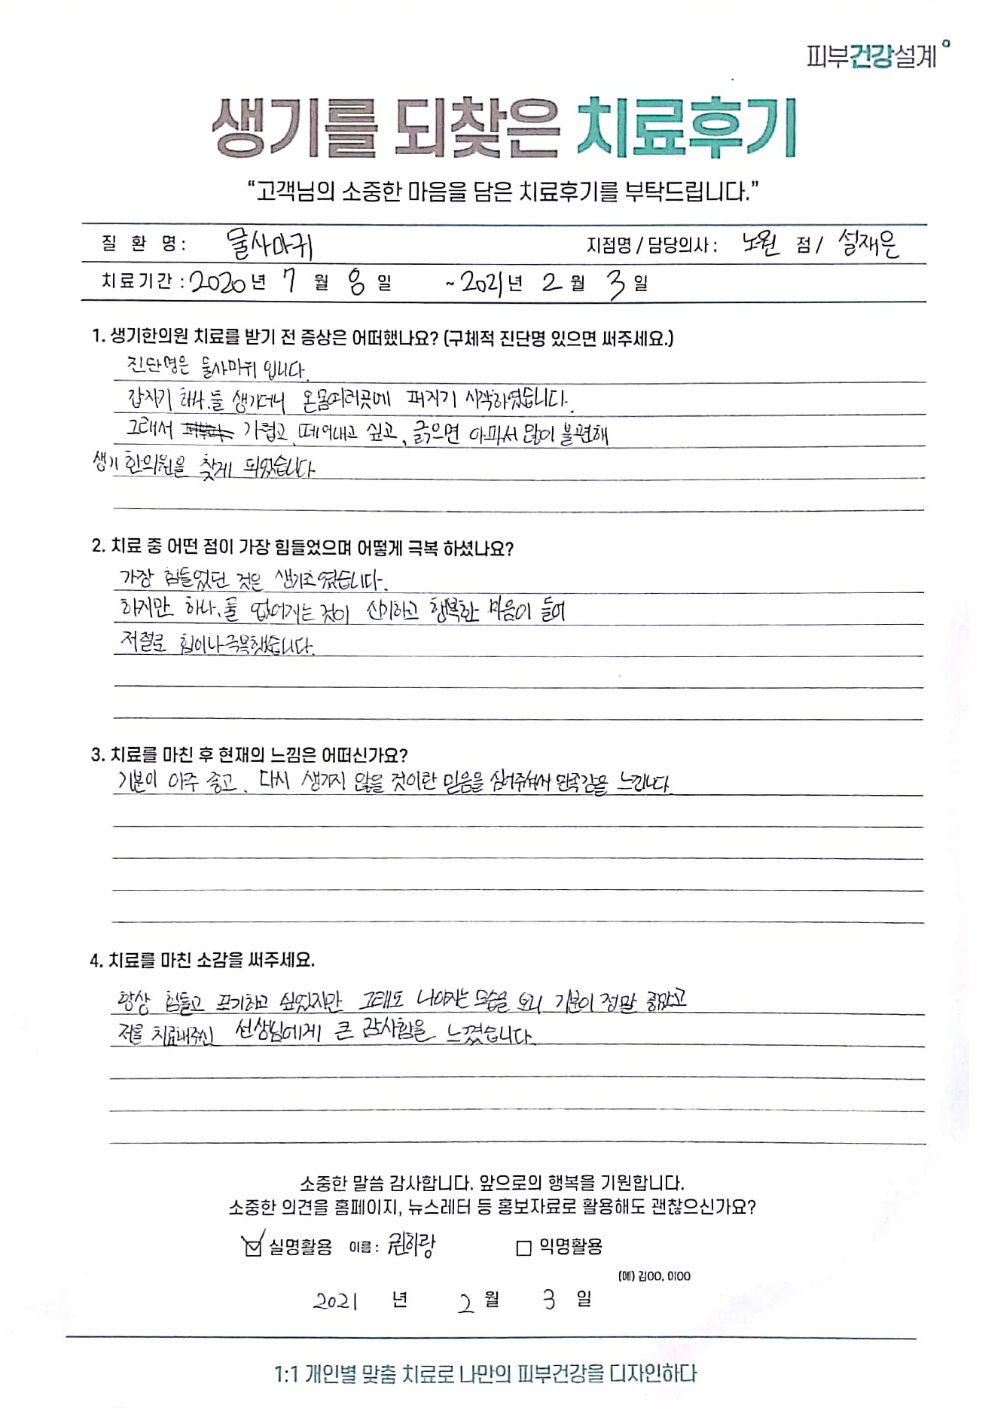 피부건강설계
생기를 되찾은 치료후기
“고객님의 소중한 마음을 담은 치료후기를 부탁드립니다.”
질 환 명 : 물사마귀 지점명 / 담당의사 : 노원 점 / 설재은
치료기간 : 2020 년 7 월 8 일 ~ 2021 년 2 월 3 일
1. 생기한의원 치료를 받기 전 증상은 어떠했나요? (구체적 진단명 있으면 써주세요.)
진단명은 물사마귀 입니다.
갑자기 하나.둘 생기더니 온몸여러곳에 퍼지기 시작하였습니다.
그래서 가렵고, 떼어내고 싶고, 긁으면 아파서 많이 불편해
생기 한의원을 찾게 되었습니다
2. 치료 중 어떤 점이 가장 힘들었으며 어떻게 극복 하셨나요?
가장 힘들었던 것은 생기조였습니다.
하지만 하나.둘 없어지는 것이 신기하고 행복한 마음이 들어
저절로 힘이나 극복했습니다.
3. 치료를 마친 후 현재의 느낌은 어떠신가요?
기분이 아주 좋고, 다시 생기지 않을 것이란 믿음을 심어주셔서 만족감을 느낍니다.
4. 치료를 마친 소감을 써주세요.
항상 힘들고 포기하고 싶었지만 그래도 나아지는 모습을 보니 기분이 정말 좋았고
저를 치료해주신 선생님에게 큰 감사함을 느꼈습니다.
소중한 말씀 감사합니다. 앞으로의 행복을 기원합니다.
소중한 의견을 홈페이지, 뉴스레터 등 홍보자료로 활용해도 괜찮으신가요?
실명활용 이름 : 권하랑 익명활용
(예) 김OO, 이OO
2021 년 2 월 3 일
1:1 개인별 맞춤 치료로 나만의 피부건강을 디자인하다